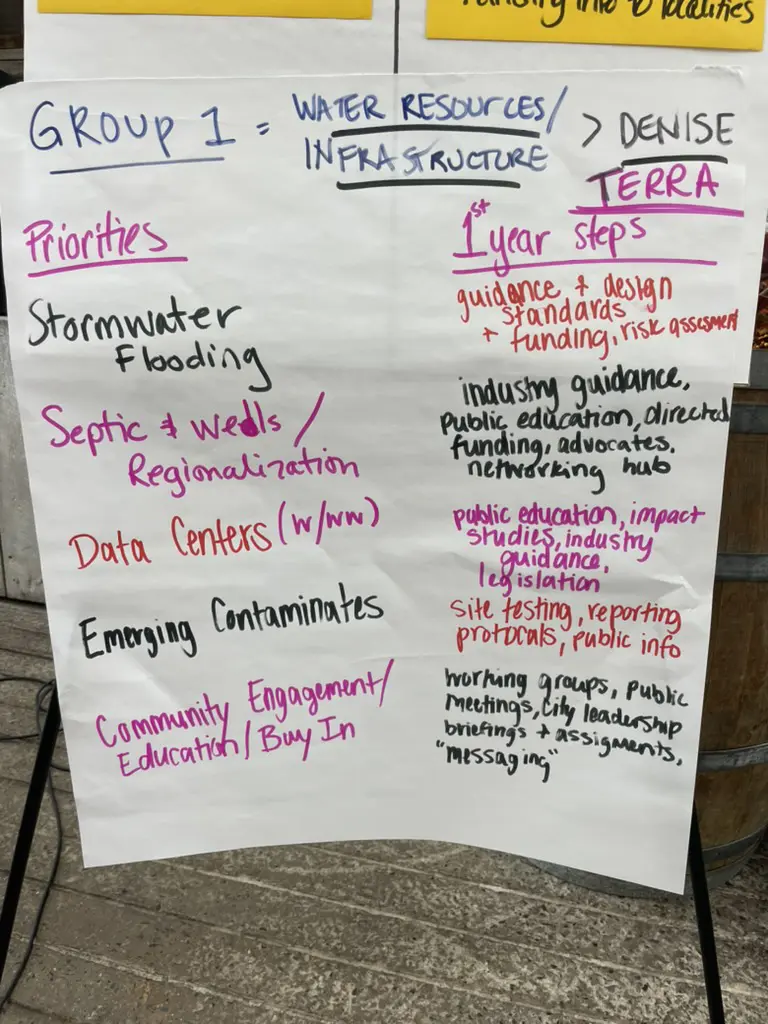 funding info to localities
GROUP 1 = WATER RESOURCES/
INFRASTRUCTURE
> DENISE
TERRA
Priorities
1st year steps
Stormwater
Flooding
guidance + design
standards
+ funding, risk assesment
Septic & wells /
Regionalization
industry guidance,
public education, directed
funding, advocates,
networking hub
Data Centers (w/ww)
public education, impact
studies, industry
guidance,
legislation
Emerging Contaminates
site testing, reporting
protocals, public info
Community Engagement/
Education/Buy In
working groups, public
meetings, city leadership
briefings + assigments,
"messaging"